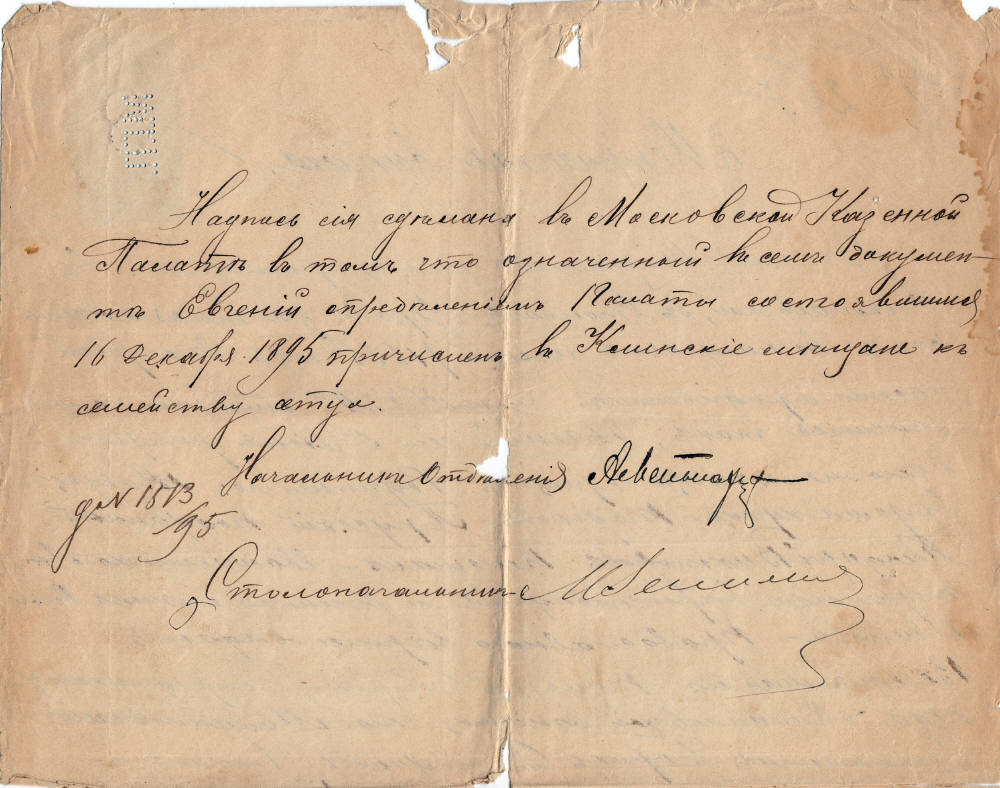 Надпись сія сдѣлана въ Московской Казенной
Палатѣ въ томъ что означенный въ семъ докумен-
тѣ Евгеній опредѣленіемъ Палаты состоявшимся
16 Декабря 1895 причисленъ въ Клинскіе мѣщане къ
семейству отца.
Начальникъ Отдѣленія
д№ 1573
/95
Столоначальникъ